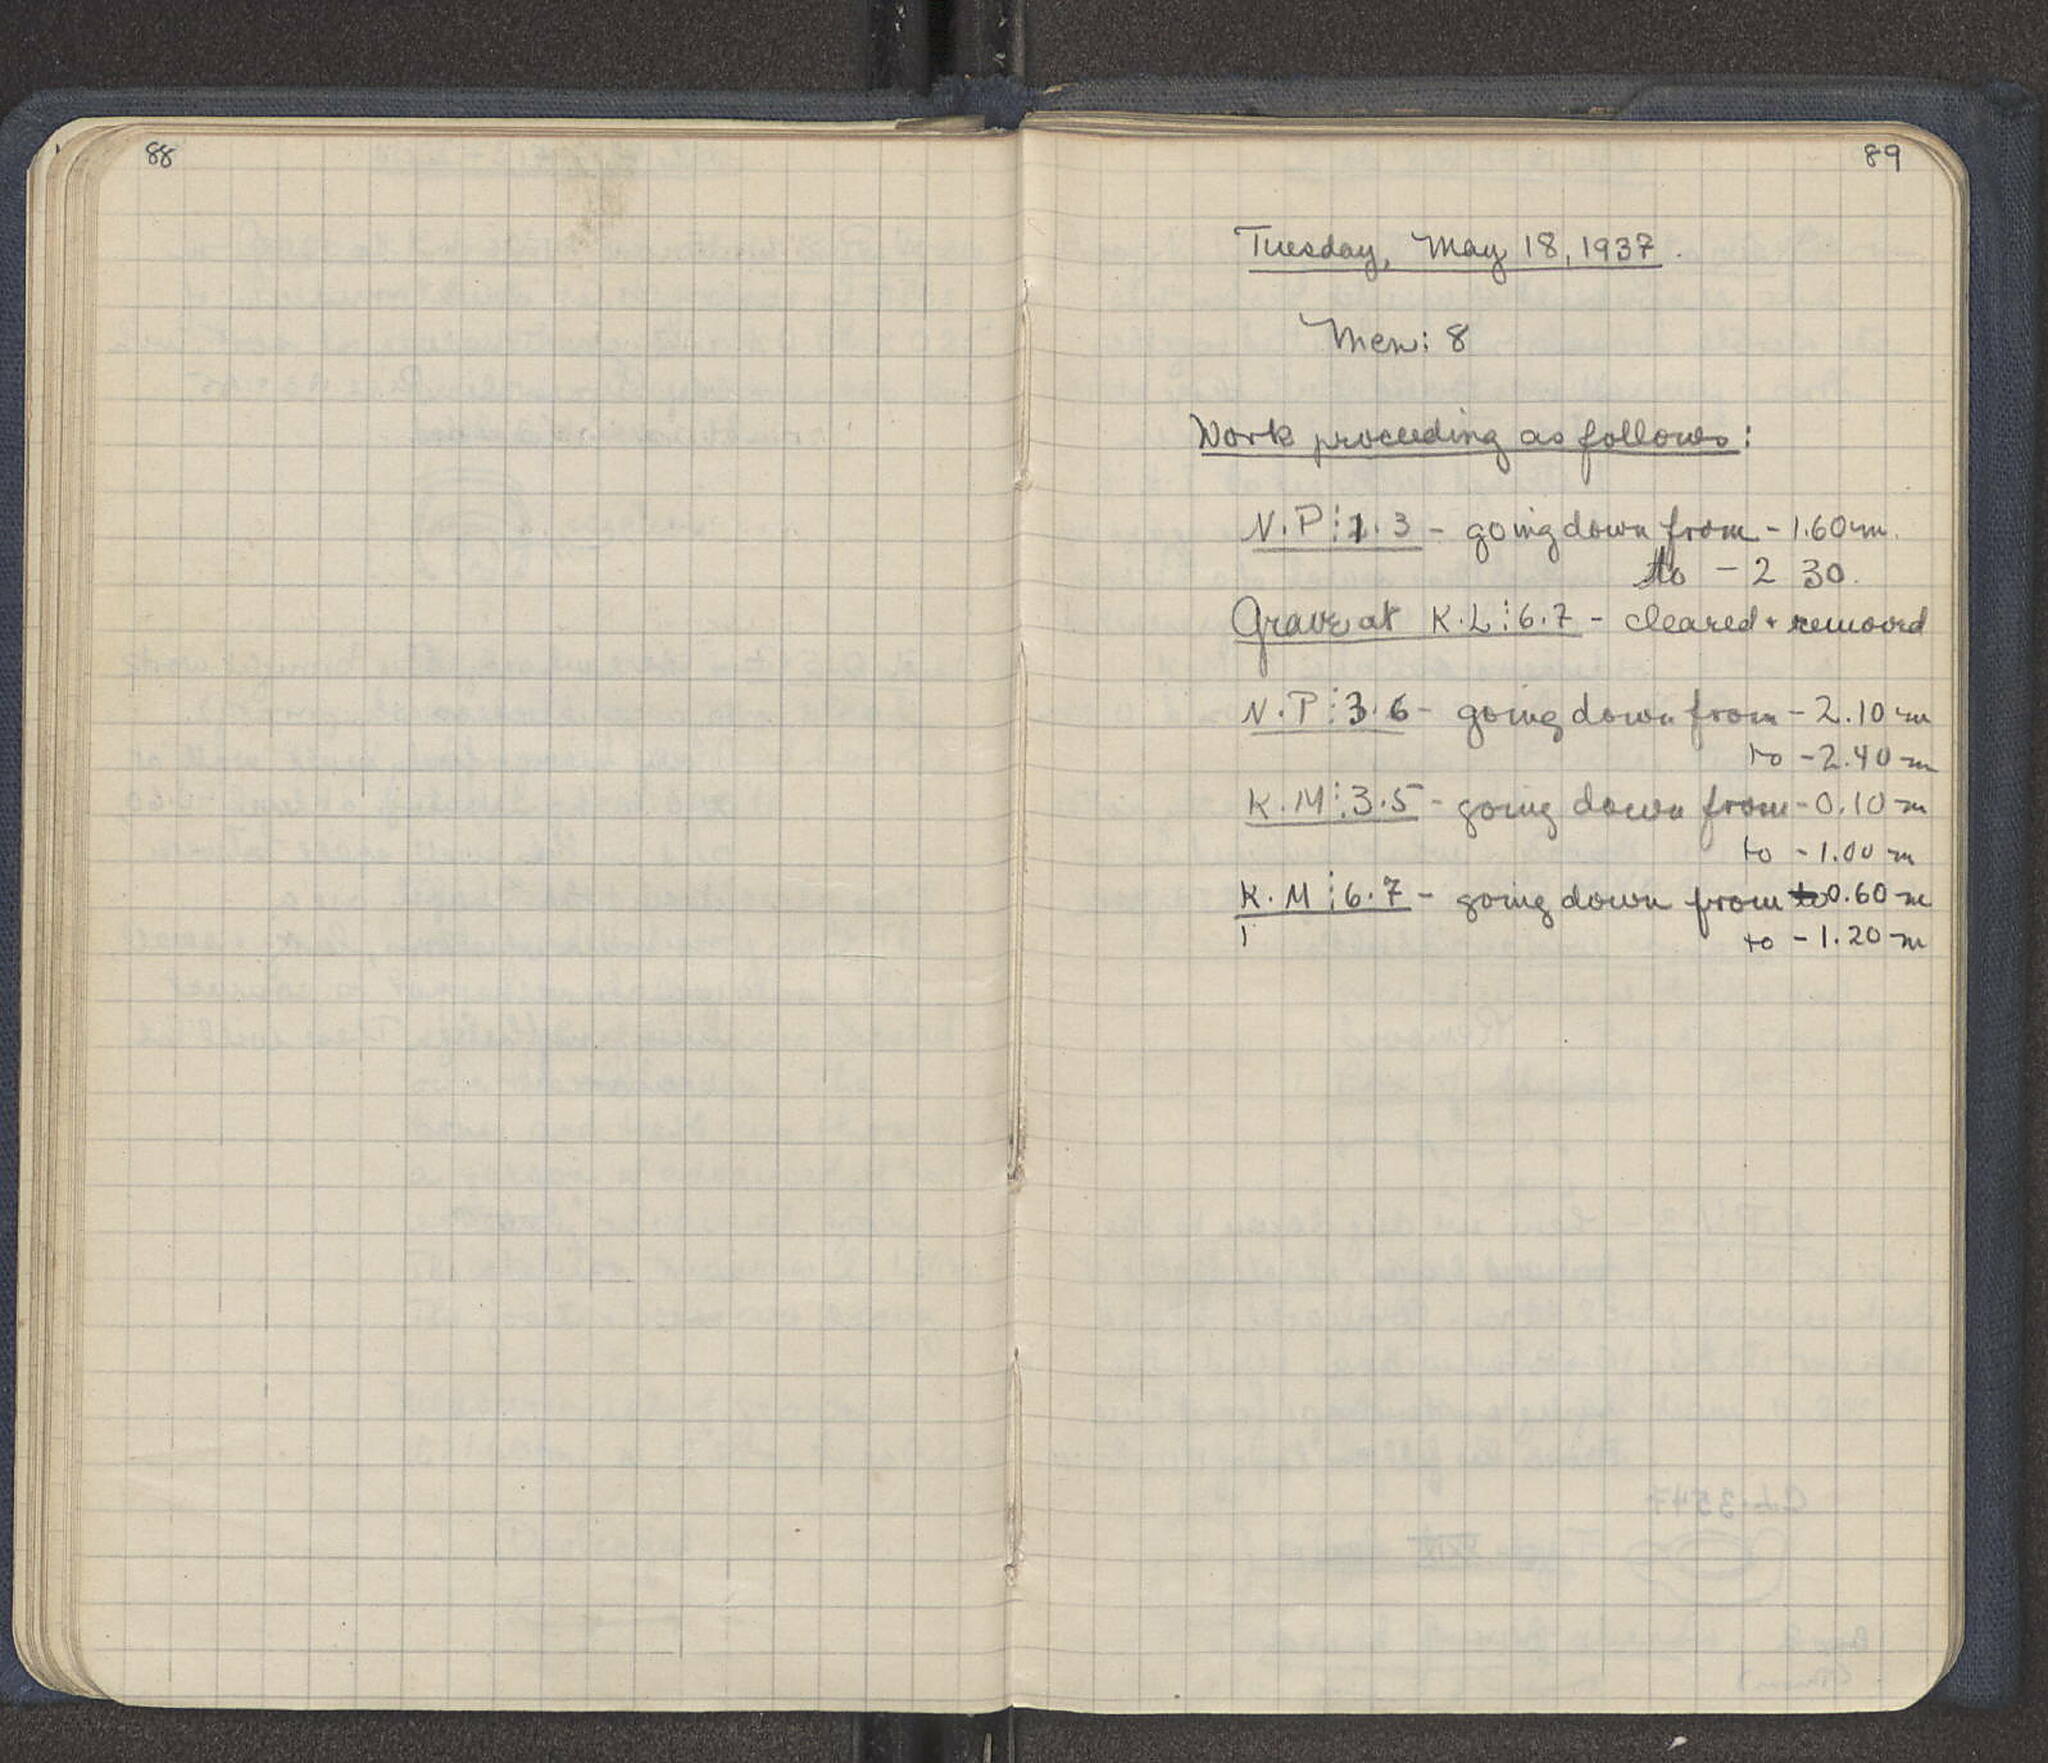 88
89
Tuesday, May 18, 1937.
Men: 8
Work proceeding as follows:
N.P⋮1.3 - going down from -1.60 m.
to -2 30.
Grave at K.L⋮6.7 - cleared + removed
N.P⋮3.6 - going down from -2.10 m
to -2.40 m
K.M⋮3.5 - going down from -0.10 m
to -1.00 m
K.M⋮6.7 - going down from 0.60 m
to -1.20 m